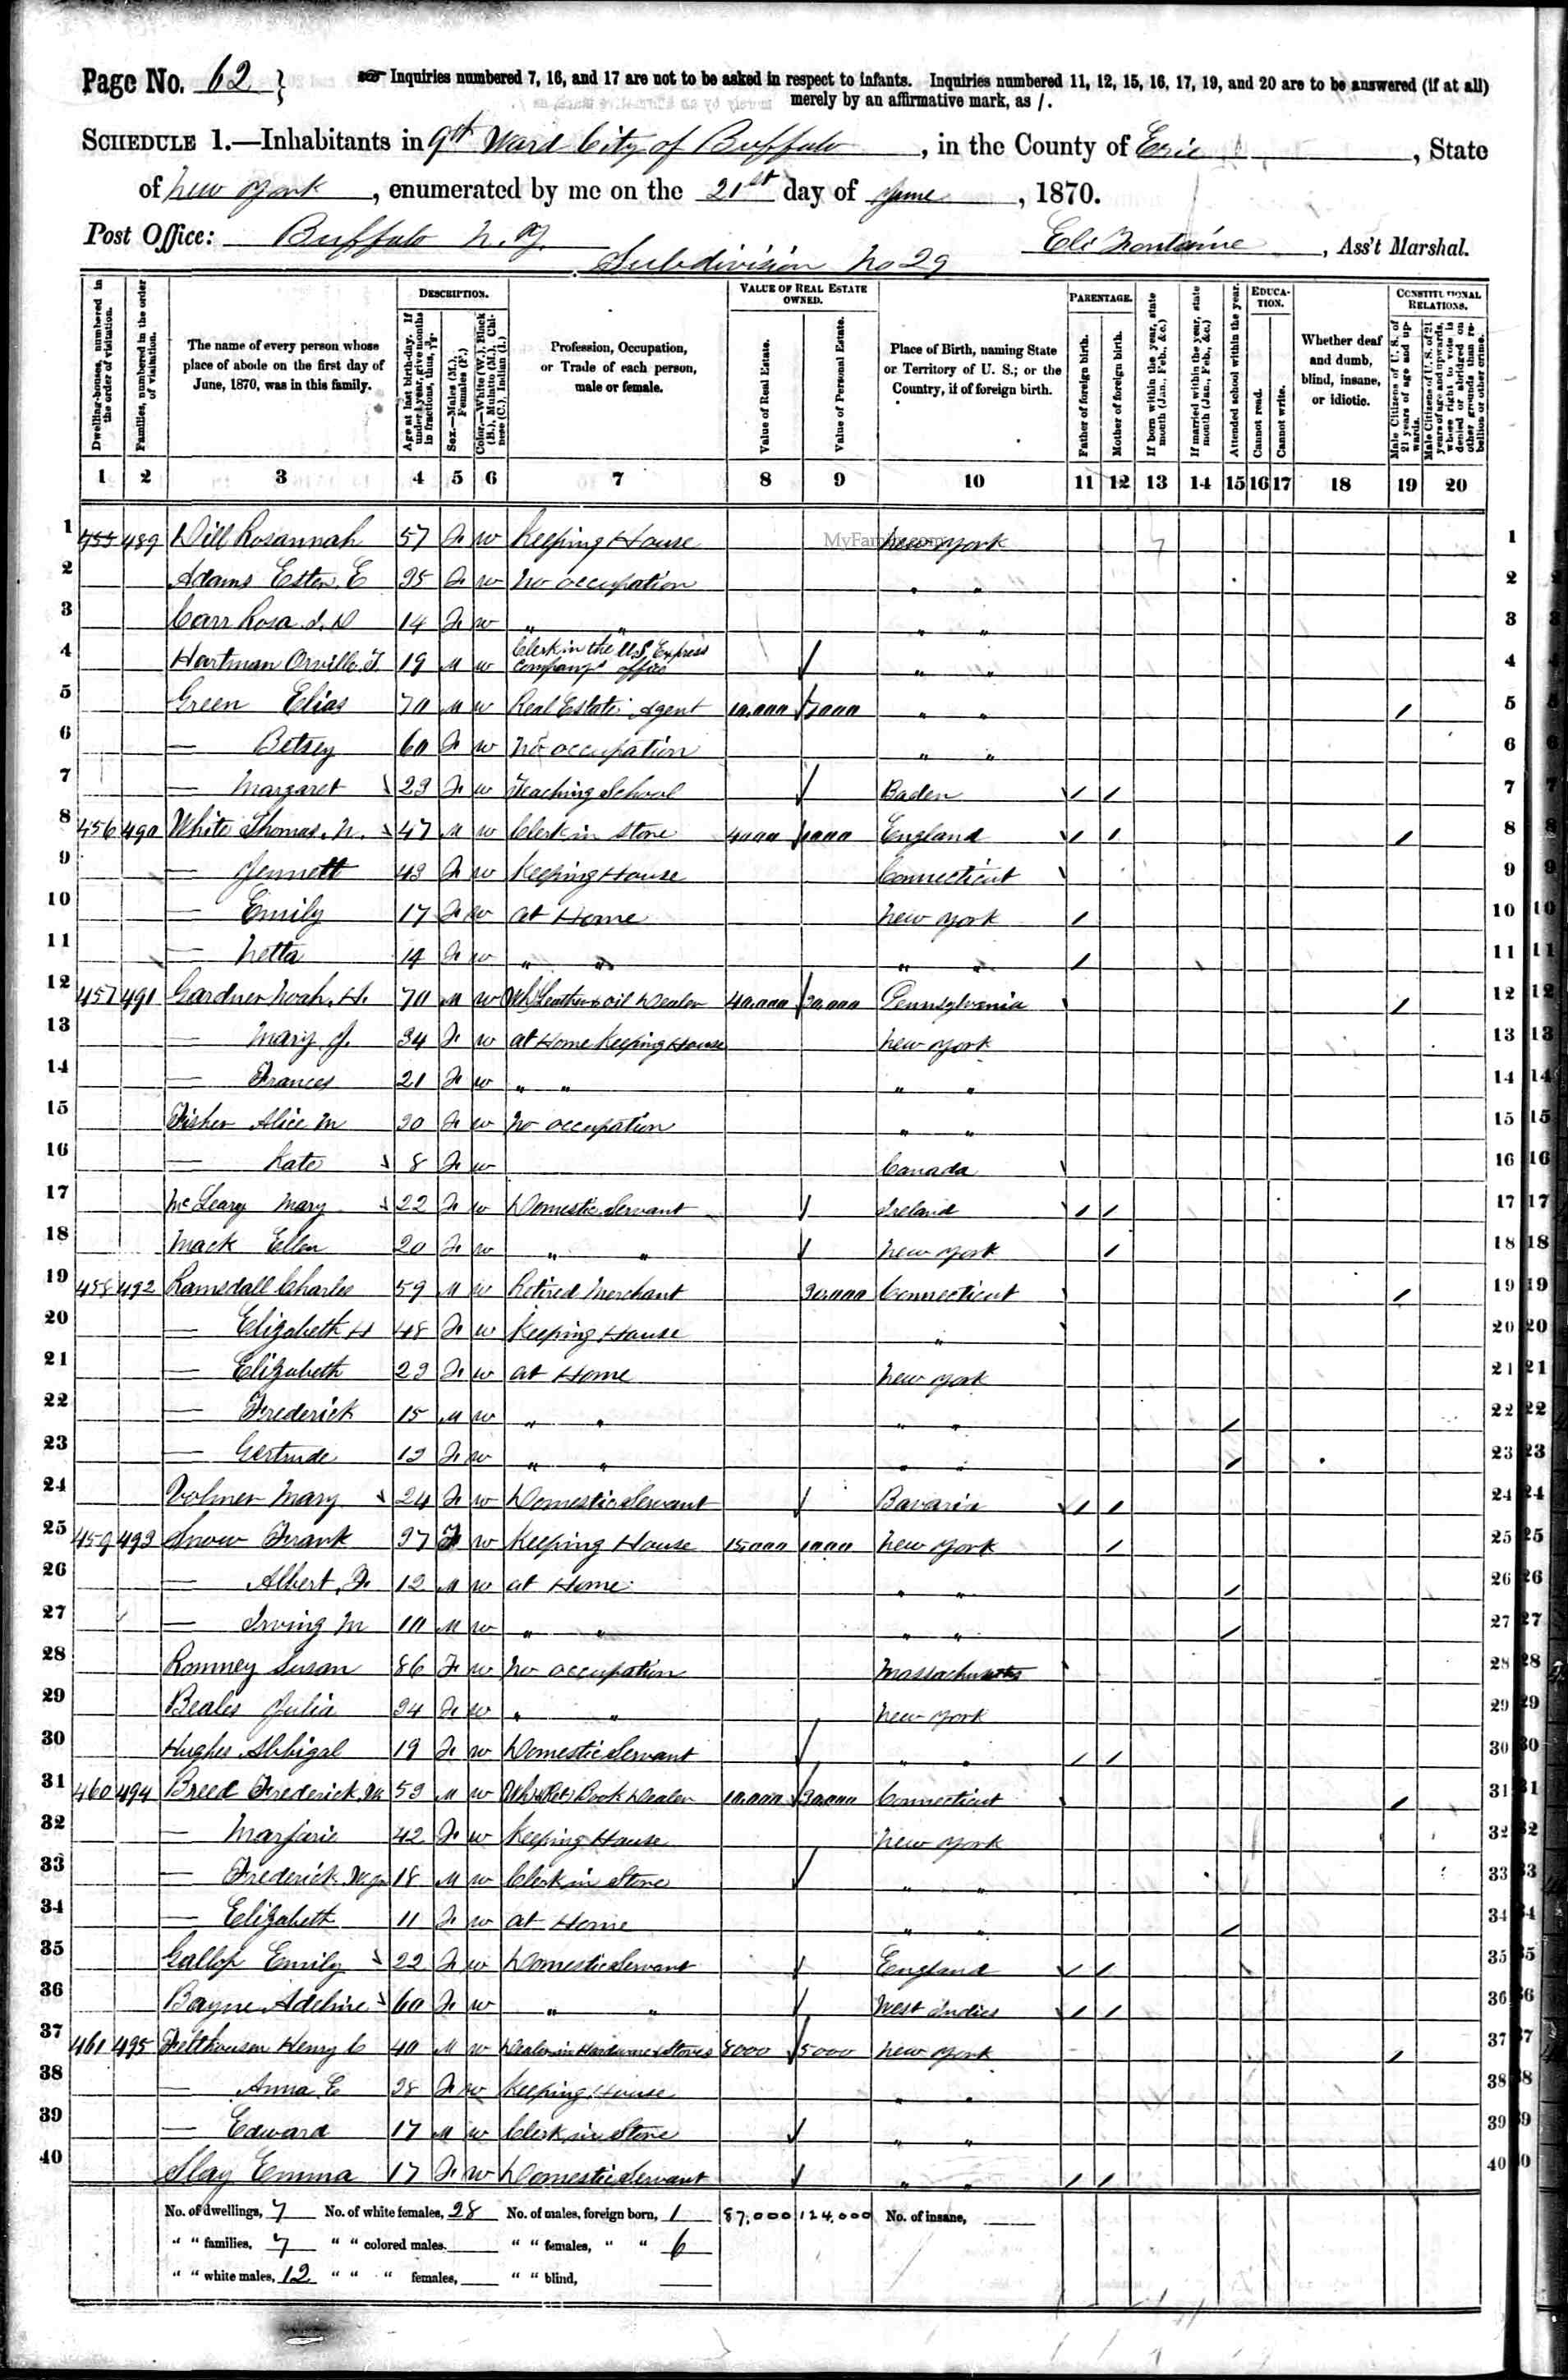 Page No. 62 } Inquiries numbered 7, 16, and 17 are not to be asked in respect to infants. Inquiries numbered 11, 12, 15, 16, 17, 19, and 20 are to be answered (if at all)
merely by an affirmative mark, as /.
SCHEDULE 1.—Inhabitants in 9th Ward City of Buffalo, in the County of Erie, State
of New York, enumerated by me on the 21st day of June, 1870.
Post Office: Buffalo N.Y. Eli Fontaine, Ass't Marshal.
Subdivision No 29
Dwelling-houses, numbered in the order of visitation.
Families, numbered in the order of visitation.
The name of every person whose place of abode on the first day of June, 1870, was in this family.
DESCRIPTION.
Age at last birth-day. If under 1 year, give months in fractions, thus, 3/12.
Sex.—Males (M.), Females (F.)
Color.—White (W.), Black (B.), Mulatto (M.), Chinese (C.), Indian (I.)
Profession, Occupation, or Trade of each person, male or female.
VALUE OF REAL ESTATE OWNED.
Value of Real Estate.
Value of Personal Estate.
Place of Birth, naming State or Territory of U. S.; or the Country, if of foreign birth.
PARENTAGE.
Father of foreign birth.
Mother of foreign birth.
If born within the year, state month (Jan., Feb., &c.)
If married within the year, state month (Jan., Feb., &c.)
Attended school within the year.
EDUCATION.
Cannot read.
Cannot write.
Whether deaf and dumb, blind, insane, or idiotic.
CONSTITUTIONAL RELATIONS.
Male Citizens of U. S. of 21 years of age and upwards.
Male Citizens of U. S. of 21 years of age and upwards, whose right to vote is denied or abridged on other grounds than rebellion or other crime.
1 2 3 4 5 6 7 8 9 10 11 12 13 14 15 16 17 18 19 20
1 455 489 Dill Rosannah 57 F W Keeping House New York 1
MyFamily.com
2 Adams Ester E 35 F W No occupation " " 2
3 Carr Rosa 14 F W " " " " 3
4 Hartman Orville T. 19 M W Clerk in the U.S. Express Companys office " " 4
5 Green Elias 70 M W Real Estate Agent 10,000 " " / 5
6 — Betsey 60 F W No occupation " " 6
7 — Margaret 23 F W Teaching School Baden / / 7
8 456 490 White Thomas N. 47 M W Clerk in Store 4000 1000 England / / / 8
9 — Jennett 43 F W Keeping House Connecticut 9
10 — Emily 17 F W at Home New York / 10
11 — Netta 14 F W " " " " / 11
12 457 491 Gardner Noah H. 70 M W Wh Leather & oil Dealer 40,000 30,000 Pennsylvania / 12
13 — Mary J. 34 F W at Home Keeping House New York 13
14 — Frances 21 F W " " " " 14
15 Fisher Alice M 30 F W No occupation " " 15
16 — Kate 8 F W Canada 16
17 McLeary Mary 22 F W Domestic Servant Ireland / / 17
18 Mack Ellen 20 F W " " New York / 18
19 458 492 Ramsdall Charles 59 M W Retired Merchant 30,000 Connecticut / 19
20 — Elizabeth H 48 F W Keeping House " 20
21 — Elizabeth 23 F W at Home New York 21
22 — Frederick 15 M W " " " " / 22
23 — Gertrude 12 F W " " " " / 23
24 Volmer Mary 24 F W Domestic Servant Bavaria / / 24
25 459 493 Snow Frank 37 F W Keeping House 15,000 1000 New York / 25
26 — Albert F. 12 M W at Home " " / 26
27 — Irving M 10 M W " " " " / 27
28 Romney Susan 86 F W No occupation Massachusetts 28
29 Beales Julia 34 F W " " New York 29
30 Hughes Abbigal 19 F W Domestic Servant " " / / 30
31 460 494 Breed Frederick W 53 M W Wh & Ret Book Dealer 10,000 30,000 Connecticut / 31
32 — Marjarie 42 F W Keeping House New York 32
33 — Frederick W jr 18 M W Clerk in Store " " 33
34 — Elizabeth 11 F W at Home " " / 34
35 Gallop Emily 22 F W Domestic Servant England / / 35
36 Bayne Adeline 60 F W " " West Indies / / 36
37 461 495 Felthousen Henry C 40 M W Dealer in Hardware & Stoves 8000 5000 New York / 37
38 — Anna E 38 F W Keeping House " " 38
39 — Edward 17 M W Clerk in Store " " 39
40 Slay Emma 17 F W Domestic Servant " " / / 40
No. of dwellings, 7 No. of white females, 28 No. of males, foreign born, 1 87,000 124,000 No. of insane,
" " families, 7 " " colored males, " " females, " " 6
" " white males, 12 " " " females, " " blind,